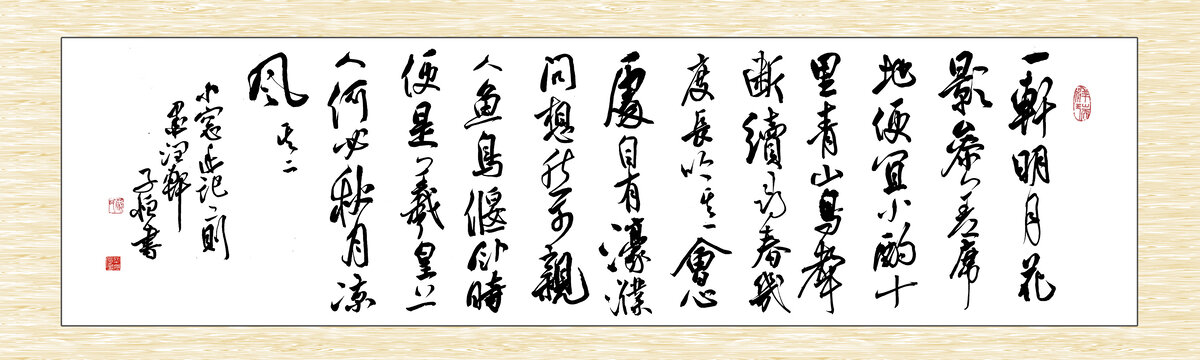 一軒明月花
影參差席
地便宜小酌十
里青山鳥聲
斷續尋春幾
度長吟其一會心
處自有濠濮
間想然可親
人魚鳥偃卧時
便是羲皇上
人何必秋月凉
風其二
小窗幽记二則
墨润軒
子恒書